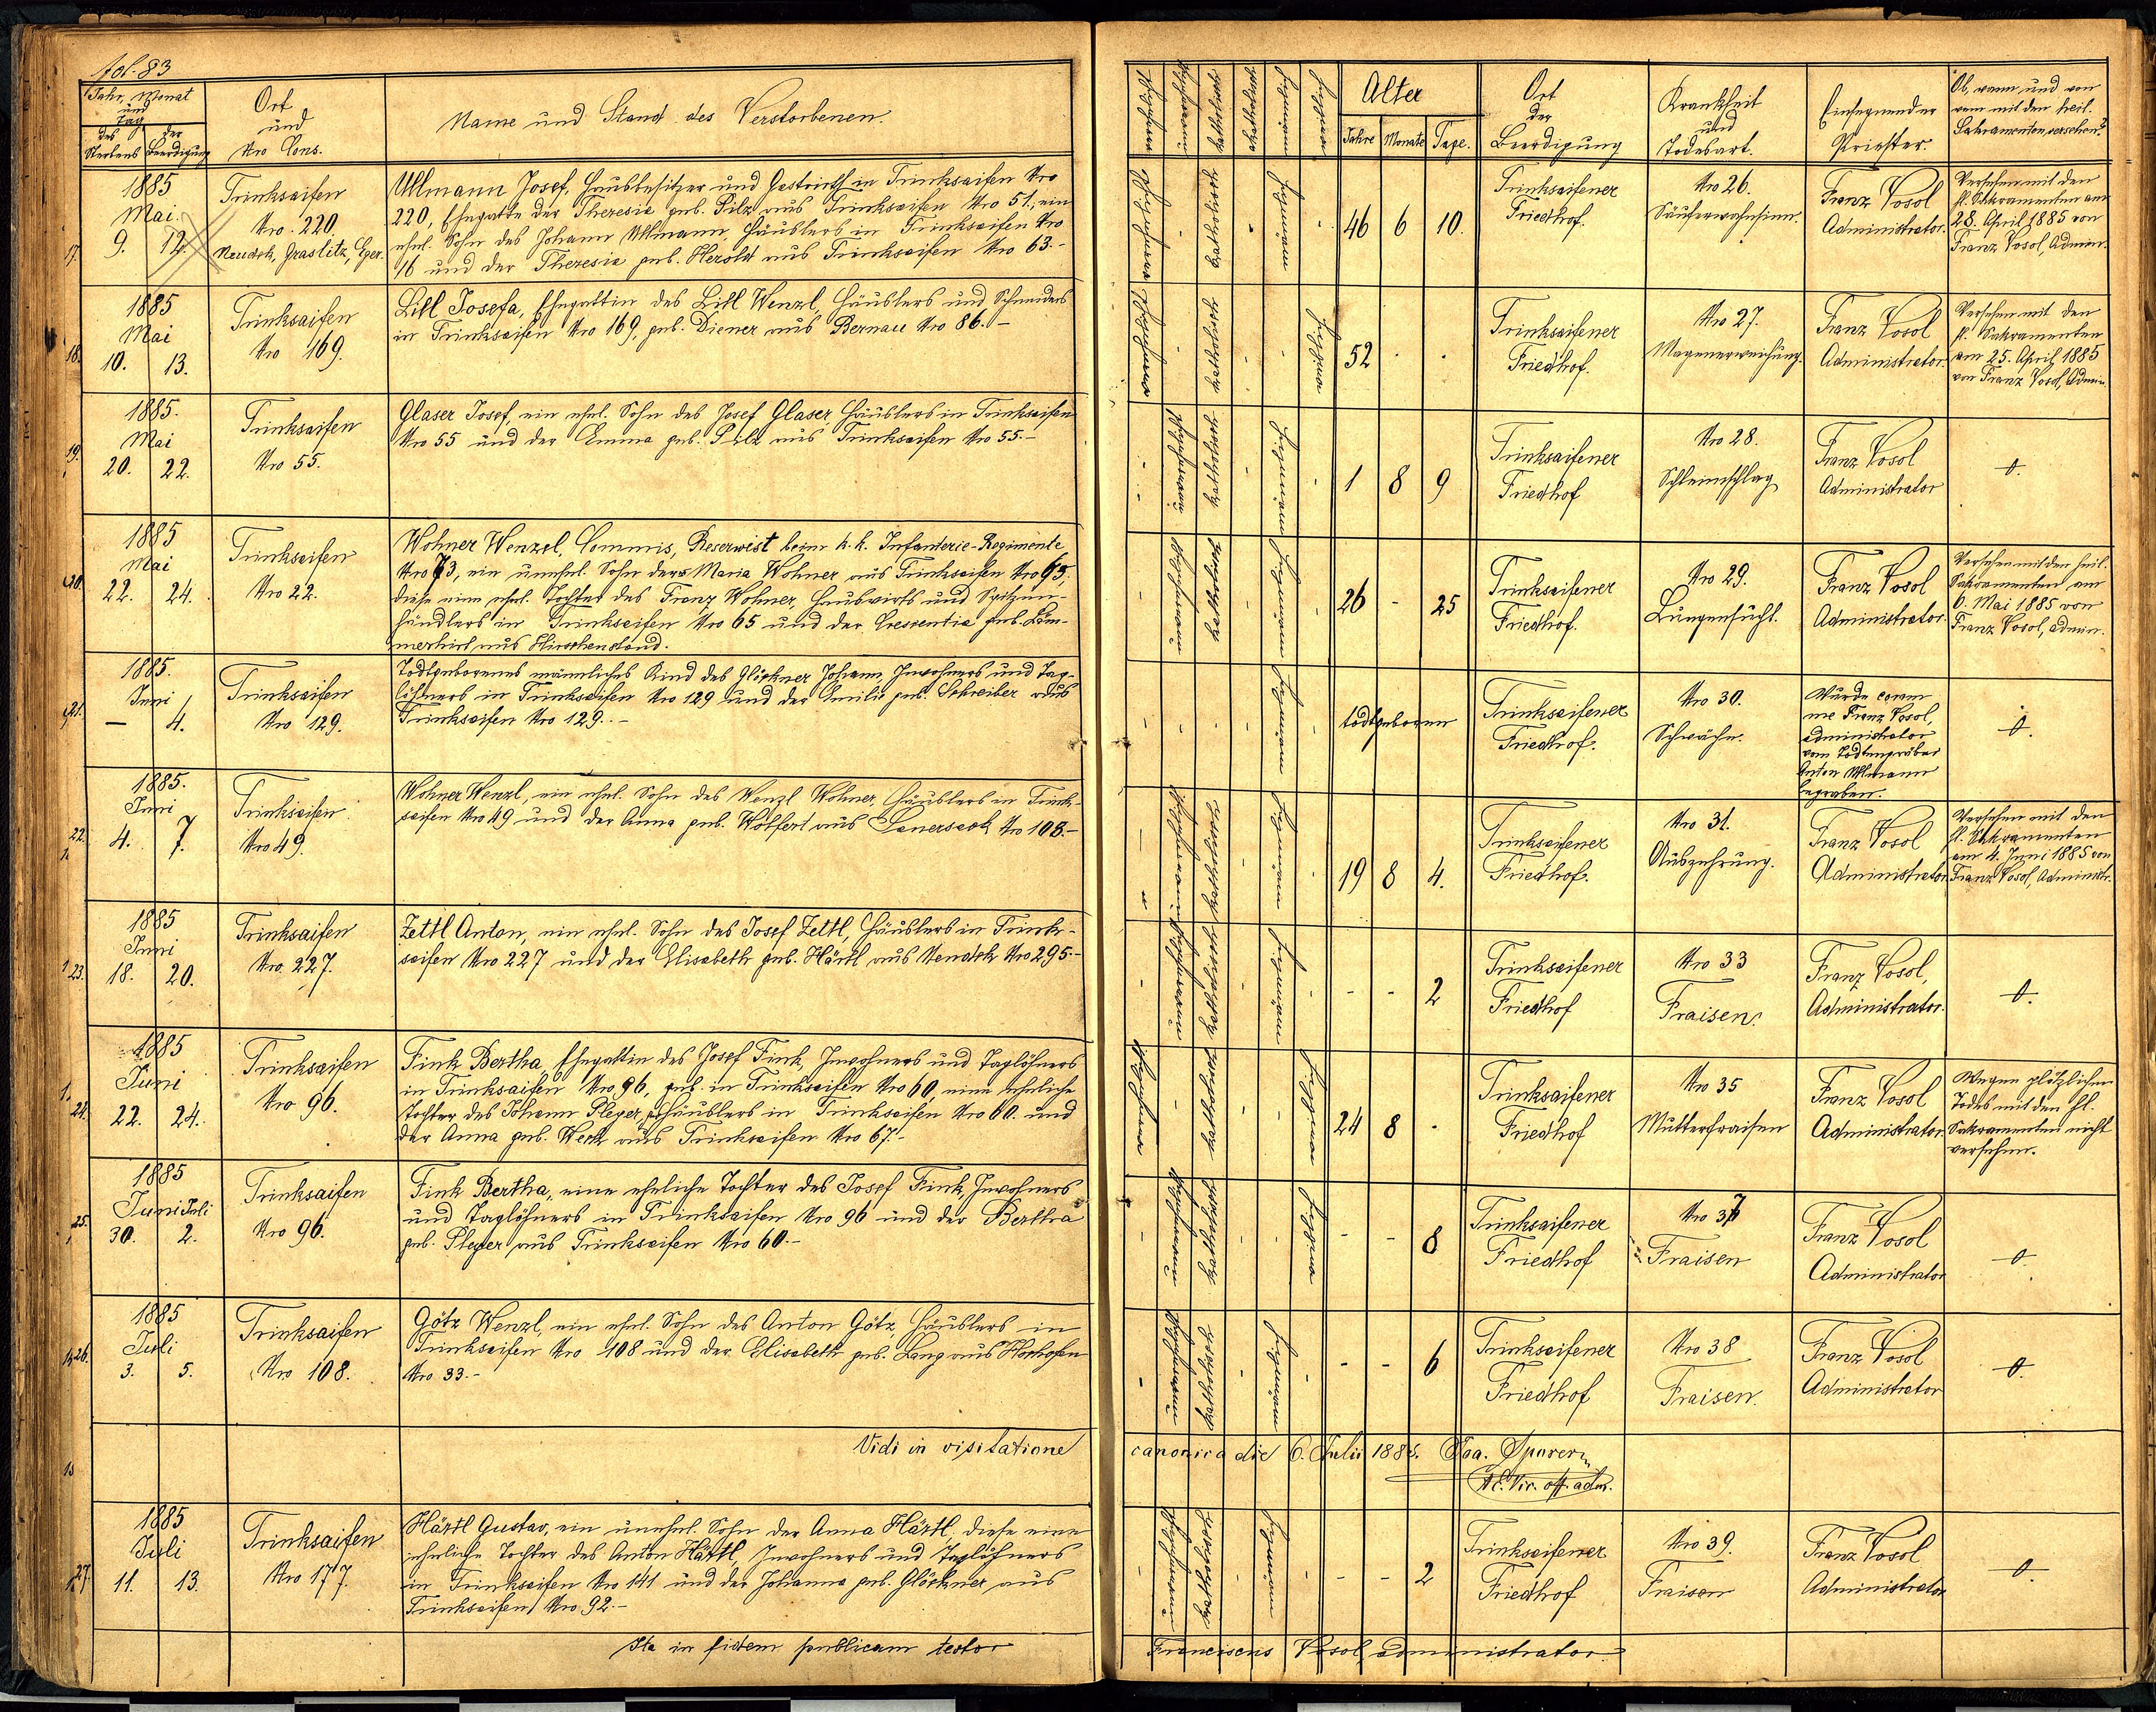 fol. 83
Jahr, Monat
und
Tag
des
Sterbens
der
Beerdigung
Ort
und
Nro Cons.
Name und Stand des Verstorbenen.
Alter
Jahre
Monate
Tage.
Ort
der
Beerdigung
Krankheit
und
Todesart.
Einsegnender
Priester.
Ob, wann und von
wem mit den heil.
Sakramenten versehen?
17.
1885
Mai.
9. 12.
Trinksaifen
Nro. 220.
Neudek, Graslitz, Eger.
Ullmann Josef, Hausbesitzer und Gastwirth in Trinksaifen Nro
220, Ehegatte der Theresia geb. Pilz aus Trinksaifen Nro 51., ein
ehel. Sohn des Johann Ullmann, Häuslers in Trinksaifen Nro
16 und der Theresia geb. Herold aus Trinksaifen Nro 63.-
katholisch
46 6 10.
Trinksaifener
Friedhof.
Nro 26.
Säuferwahnsinn.
Franz Vosol
Administrator.
Versehen mit den
hl. Sakramenten am
28. April 1885 von
Franz Vosol, Admin.
18.
1885
Mai
10. 13.
Trinksaifen
Nro 169.
Lill Josefa, Ehegattin des Lill Wenzl, Häuslers und Schneiders
in Trinksaifen Nro 169, geb. Diener aus Bernau Nro 86.-
katholisch
52 . .
Trinksaifener
Friedhof.
Nro 27.
Magenerweichung.
Franz Vosol
Administrator.
Versehen mit den
hl. Sakramenten
am 25. April 1885
von Franz Vosol, Admin.
19.
1885.
Mai
20. 22.
Trinksaifen
Nro 55.
Glaser Josef, ein ehel. Sohn des Josef Glaser, Häuslers in Trinksaifen
Nro 55 und der Emma geb. Pilz aus Trinksaifen Nro 55.-
katholisch
1 8 9
Trinksaifener
Friedhof
Nro 28.
Schleimschlag
Franz Vosol
Administrator
20.
1885
Mai
22. 24.
Trinksaifen
Nro 22.
Wohner Wenzel, Commis, Reservist beim k. k. Infanterie-Regimente
Nro 73, ein unehel. Sohn der Maria Wohner aus Trinksaifen Nro 65,
diese eine ehel. Tochter des Franz Wohner, Hauswirts und Spitzen-
händlers in Trinksaifen Nro 65 und der Crescentia geb. Läm-
merhirt aus Hirschenstand.
katholisch
26 - 25
Trinksaifener
Friedhof.
Nro 29.
Lungensucht.
Franz Vosol
Administrator.
Versehen mit den heil.
Sakramenten am
6. Mai 1885 von
Franz Vosol, Admin.
21.
1885.
Juni
— 4.
Trinksaifen
Nro 129.
Todtgeborenes männliches Kind des Glöckner Johann, Inwohners und Tag-
löhners in Trinksaifen Nro 129 und der Emilie geb. Schreiber aus
Trinksaifen Nro 129.-
todtgeboren
Trinksaifener
Friedhof.
Nro 30.
Schwäche.
Wurde coram
me Franz Vosol,
Administrator
vom Todtengräber
Anton Ullmann
begraben.
22.
1885.
Juni
4. 7.
Trinksaifen
Nro 49.
Wohner Wenzl, ein ehel. Sohn des Wenzl Wohner, Häuslers in Trink-
saifen Nro 49 und der Anna geb. Wölfert aus Sauersack Nro 108.-
katholisch
19 8 4.
Trinksaifener
Friedhof.
Nro 31.
Auszehrung.
Franz Vosol
Administrator.
Versehen mit den
hl. Sakramenten
am 4. Juni 1885 von
Franz Vosol, Administr.
23.
1885
Juni
18. 20.
Trinksaifen
Nro. 227.
Zettl Anton, ein ehel. Sohn des Josef Zettl, Häuslers in Trink-
saifen Nro 227 und der Elisabeth geb. Härtl aus Neudek Nro 295.-
katholisch
- - 2
Trinksaifener
Friedhof
Nro 33
Fraisen.
Franz Vosol,
Administrator.
24.
1885
Juni
22. 24.
Trinksaifen
Nro 96.
Fink Bertha, Ehegattin des Josef Fink, Inwohners und Taglöhners
in Trinksaifen Nro 96, geb. in Trinksaifen Nro 60, eine eheliche
Tochter des Johann Pleyer, Häuslers in Trinksaifen Nro 60. und
der Anna geb. Werk aus Trinksaifen Nro 67.-
katholisch
24 8 .
Trinksaifener
Friedhof
Nro 35
Mutterfraisen
Franz Vosol
Administrator.
Wegen plötzlichen
Todes mit den hl.
Sakramenten nicht
versehen.
25.
1885
Juni Juli
30. 2.
Trinksaifen
Nro 96.
Fink Bertha, eine eheliche Tochter des Josef Fink, Inwohners
und Taglöhners in Trinksaifen Nro 96 und der Bertha
geb. Pleyer aus Trinksaifen Nro 60.-
katholisch
- - 8
Trinksaifener
Friedhof
Nro 37
Fraisen
Franz Vosol
Administrator
26.
1885
Juli
3. 5.
Trinksaifen
Nro 108.
Götz Wenzl, ein ehel. Sohn des Anton Götz, Häuslers in
Trinksaifen Nro 108 und der Elisabeth geb. Lang aus Hochofen
Nro 33.-
katholisch
- - 6
Trinksaifener
Friedhof
Nro 38
Fraisen.
Franz Vosol
Administrator
Vidi in visitatione canonica die 6. Julii 1885.
Vic. off. adm.
27.
1885
Juli
11. 13.
Trinksaifen
Nro 177.
Härtl Gustav, ein unehel. Sohn der Anna Härtl, diese eine
eheliche Tochter des Anton Härtl, Inwohners und Taglöhners
in Trinksaifen Nro 141 und der Johanna geb. Glöckner aus
Trinksaifen Nro. 92.-
katholisch
- - 2
Trinksaifener
Friedhof
Nro 39.
Fraisen
Franz Vosol
Administrator
Ita in fidem publicam testor Franciscus Vosol, administrator.